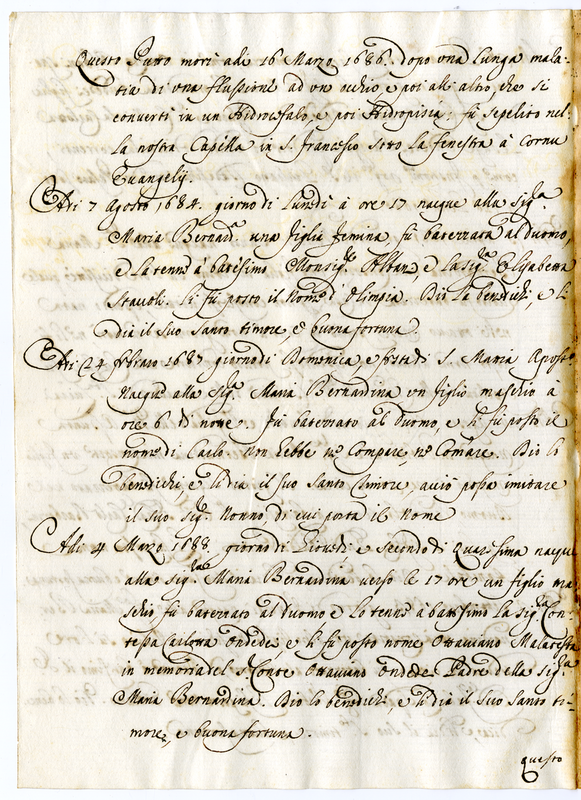 Questo Putto morì adi 16 Marzo 1686. dopo una lunga mala-
tia di una flussione ad un ochio, e poi all altro che si
convertì in un Hidrocefalo, e poi Hidropisia: fù sepelito nel-
la nostra Capella in S. Francesco sotto la fenestra à Cornu
Evangelij.
Adi 7 Agosto 1684. giorno di Lunedì à ore 17 nacque alla Sig.ra
Maria Bernard.a una figlia femina, fù batezzata al duomo,
e la tenne à batesimo Monsig.r Albani, e la Sig.ra Elisabetta
Staccoli. Li fù posto il Nome d'Olimpia. Dio la benedichi, e li
dia il suo santo timore, e buona fortuna.
Adi 24 febbraro 1687 giorno di Domenica, e festa di S. Mattia Apost.o
Nacque alla Sig.ra Maria Bernardina un figlio maschio à
ore 6 di notte. Fù batezzato al Duomo, e li fù posto il
nome di Carlo non hebbe ne Compare, ne Comare. Dio lo
benedichi, e li dia il suo santo timore, acciò possa imitare
il suo sig.r Nonno di cui porta il Nome
Adi 4 Marzo 1688. giorno di Giovedì e secondo di Quaresima nacque
alla Sig.ra Maria Bernardina verso le 17 ore un figlio ma-
schio fù batezzato al duomo e lo tenne à battesimo la Sig.ra Con-
tessa Carlotta Ondedei e li fù posto nome Ottaviano Malatesta
in memoria del s. Conte Ottaviano Ondedei Padre della Sig.ra
Maria Bernardina. Dio lo benedichi, e li dia il suo santo ti-
more, e buona fortuna.
questo